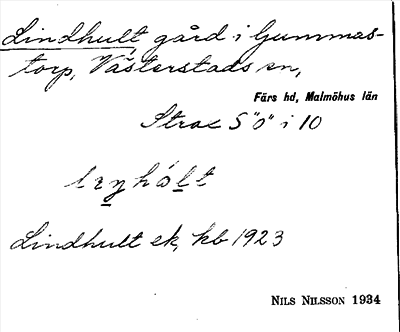 Lindhult, gård i Gummas-
torp, Västerstads sn,
Färs hd, Malmöhus län
Strax S "ö" i 10
Lindhult ek, kb 1923
NILS NILSSON 1934